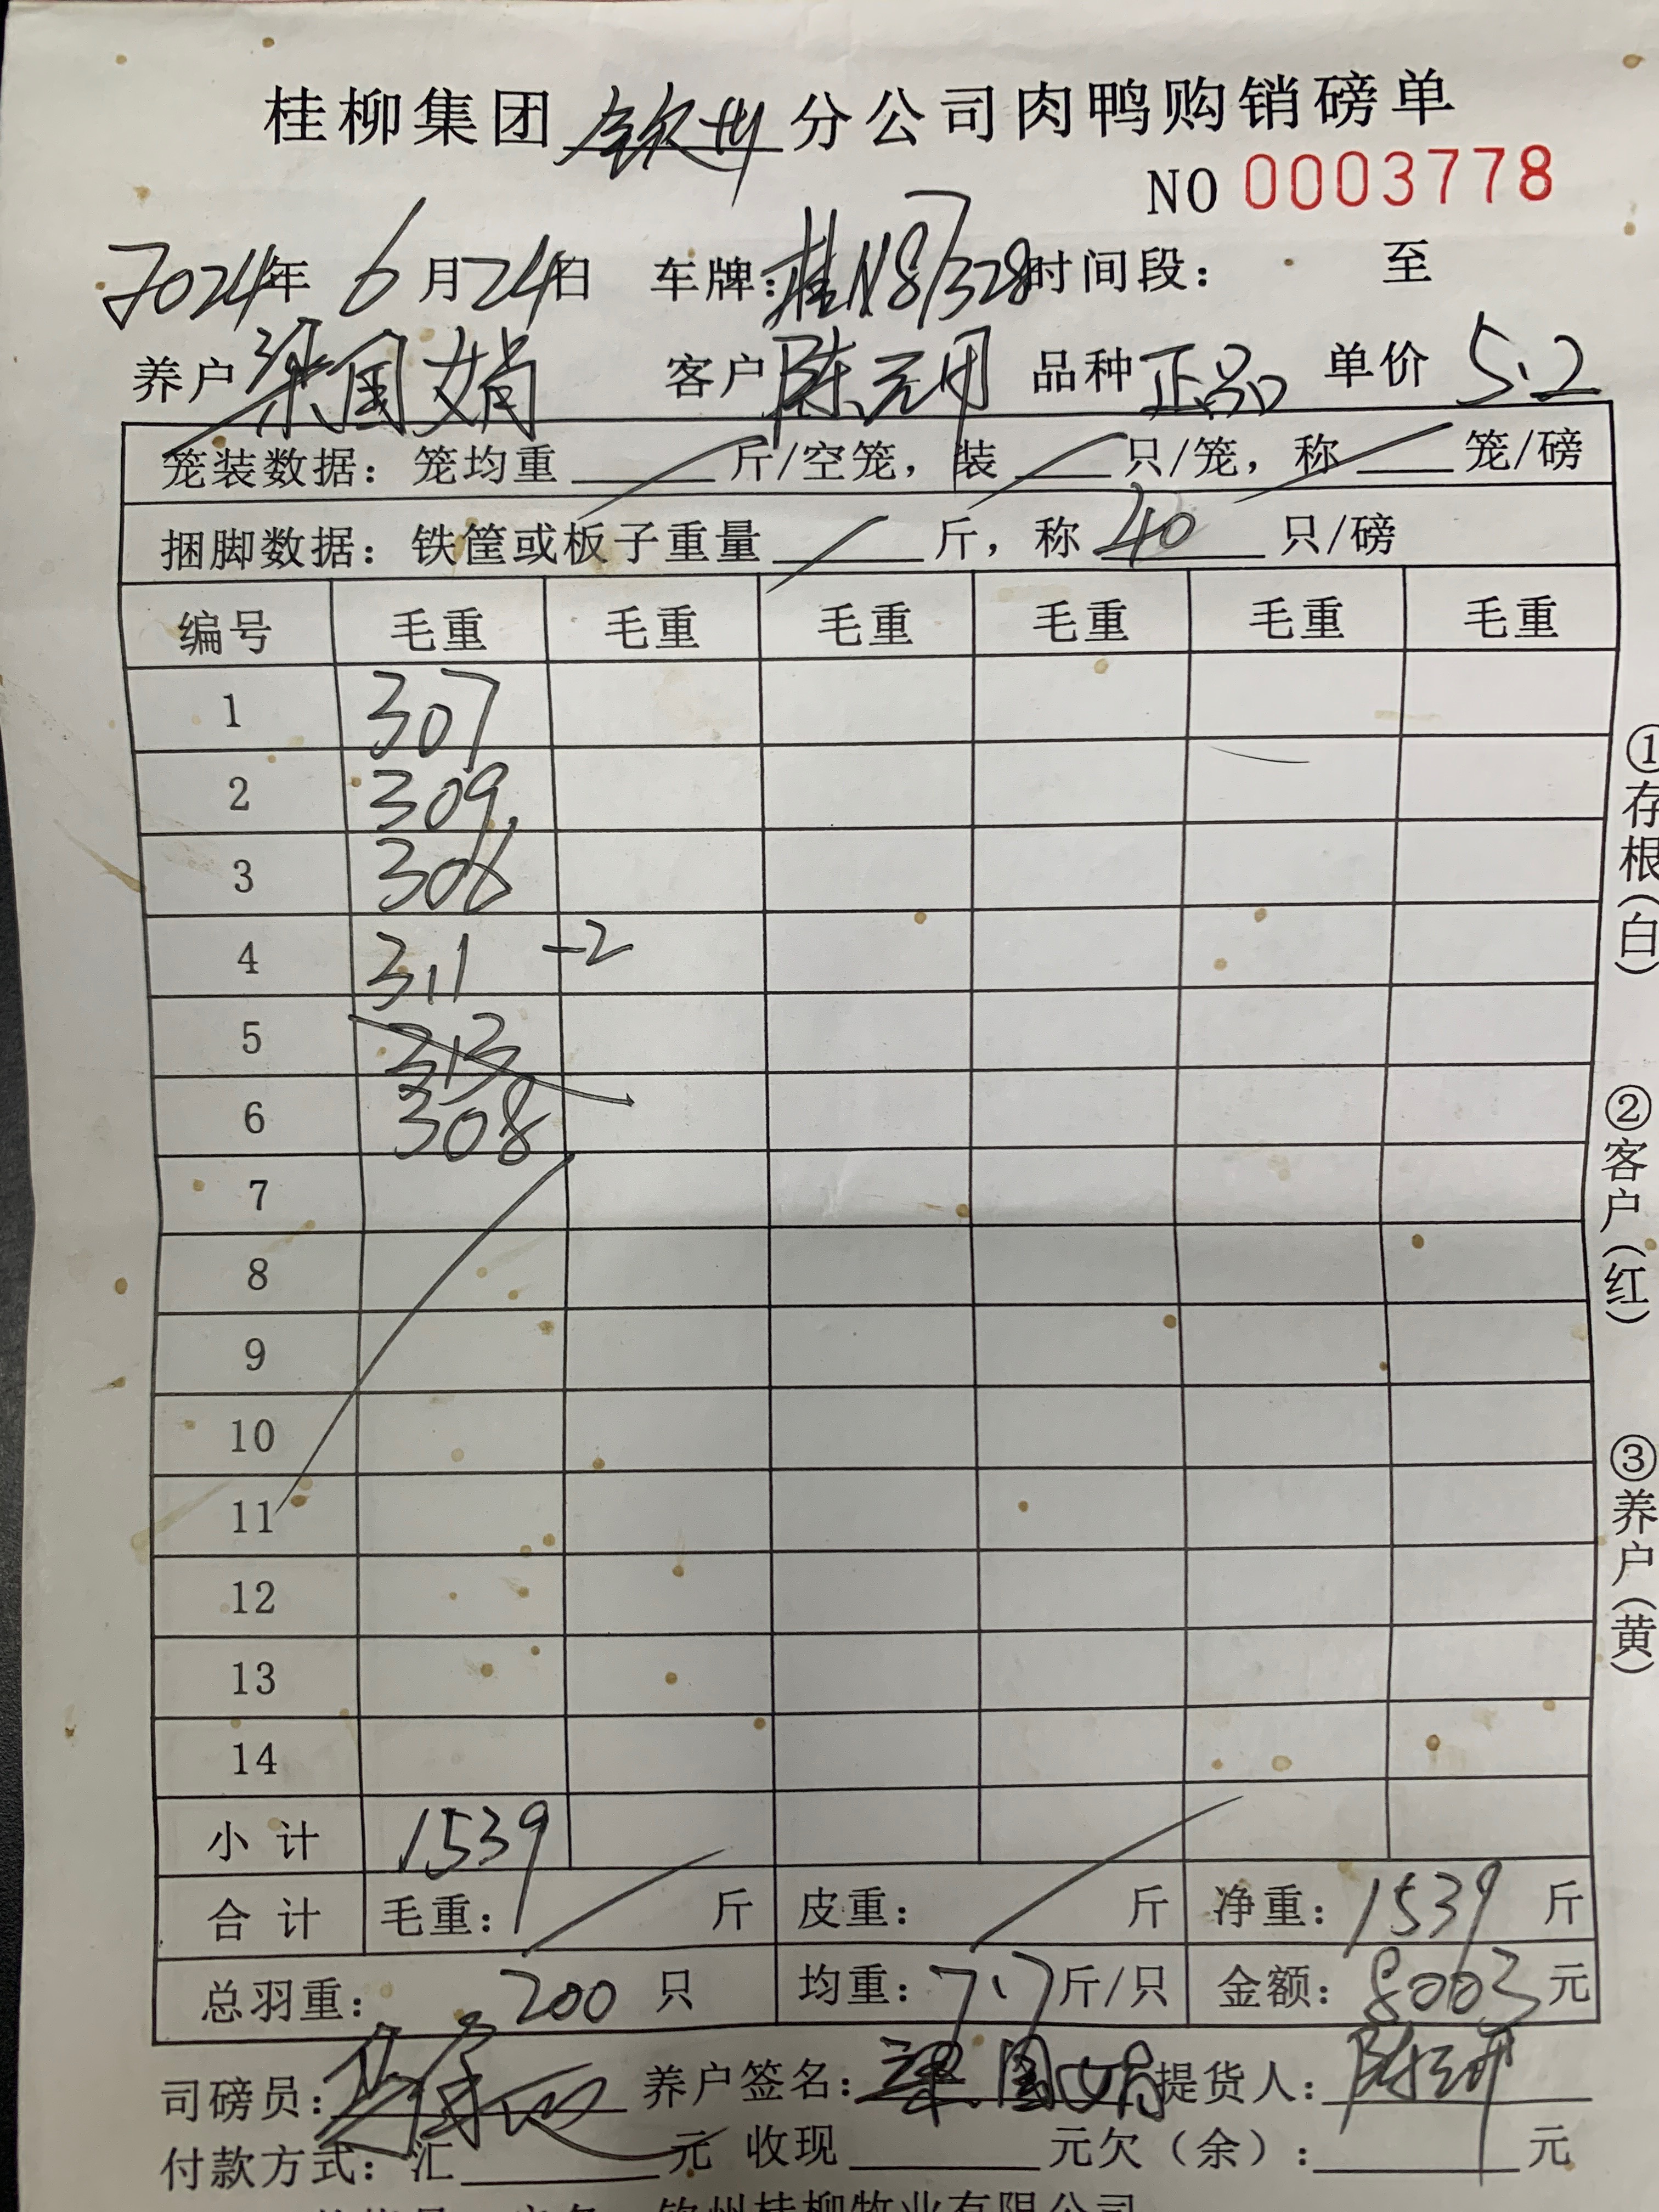 桂柳集团 钦州 分公司肉鸭购销磅单
NO 0003778
2024年 6月24日 车牌：桂N87328 时间段： 至
养户 梁国娟 客户 陈云明 品种 正品 单价 5.2
笼装数据：笼均重 斤/空笼，装 只/笼，称 笼/磅
捆脚数据：铁筐或板子重量 斤，称 40 只/磅
编号 毛重 毛重 毛重 毛重 毛重 毛重
1 307
2 309
3 306
4 311 -2
5 313
6 308
7
8
9
10
11
12
13
14
小计 1539
合计 毛重： 斤 皮重： 斤 净重：1539 斤
总羽重： 200 只 均重：7.7斤/只 金额：8003元
司磅员： 养户签名：梁国娟 提货人：
付款方式：汇 元 收现 元欠（余）： 元
钦州桂柳牧业有限公司
①存根（白）
②客户（红）
③养户（黄）